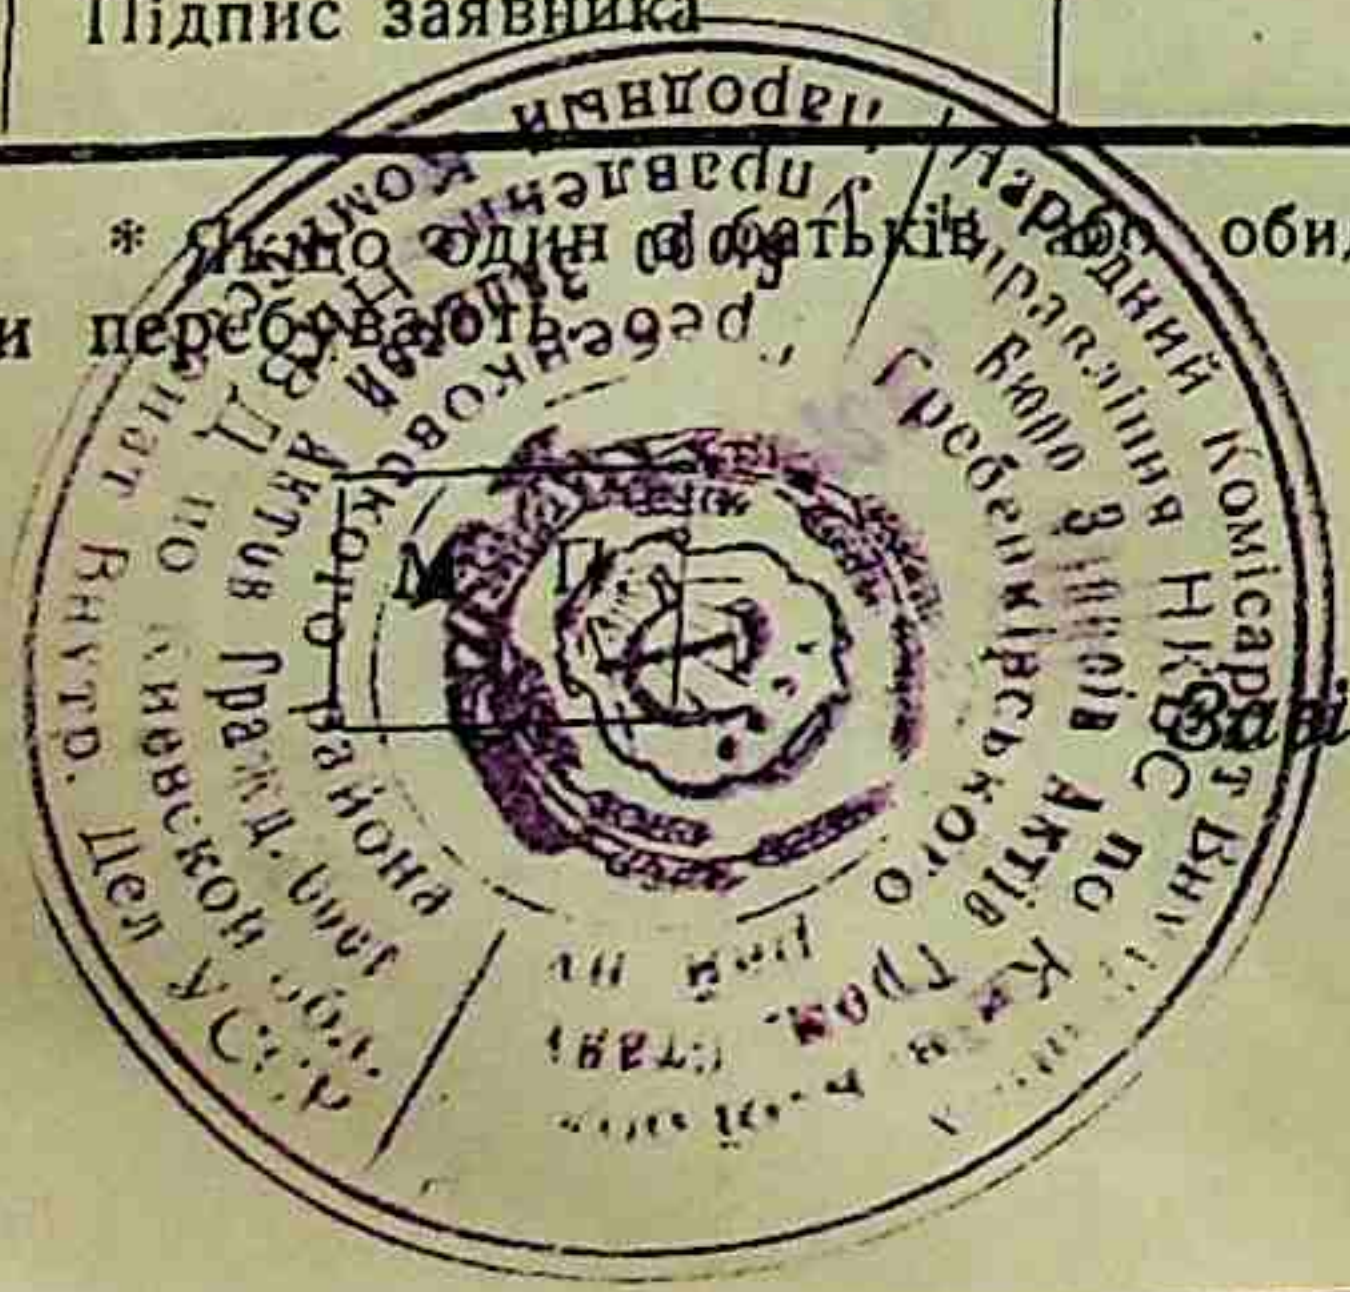 Підпис заявника
* Якщо один з батьків або обид
и перебувають
М П
Заві
Народний Комісаріат Вну
Управління НКВС по Ки
Бюро Записів Актів Гром.
Гребенківського рай
Народный Комиссариат Внутр. Дел УССР
Управление НКВД по Киевской обл.
Бюро Записи Актов Гражд. Сост
Гребенковского района